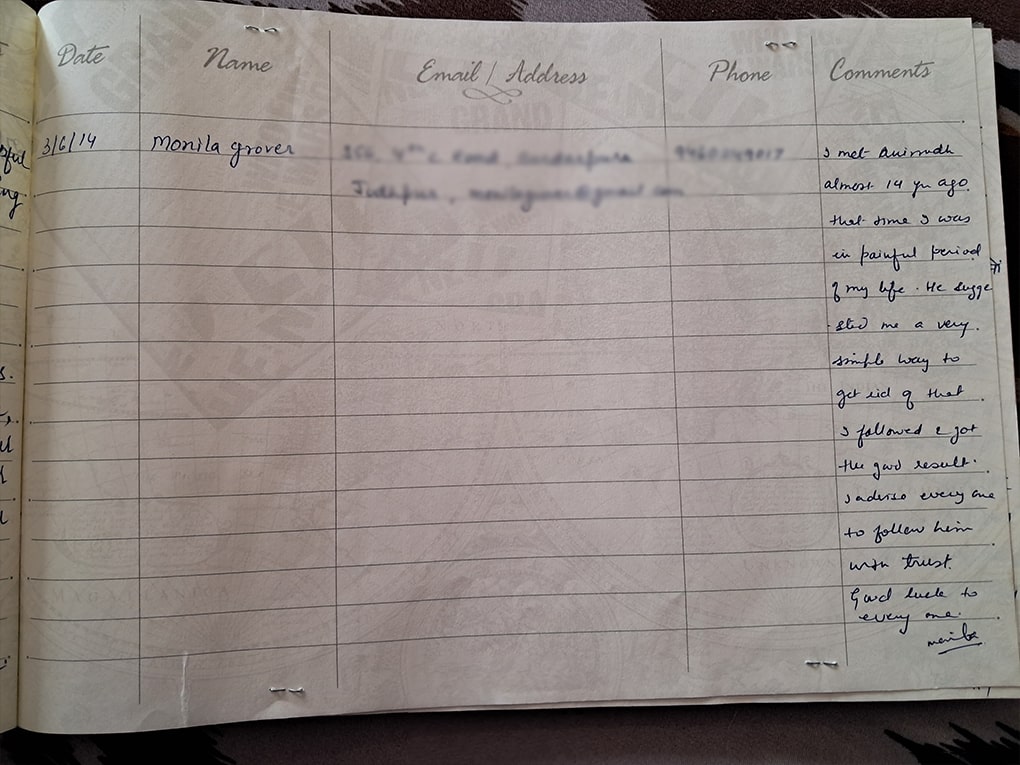 Date Name Email / Address Phone Comments
3/6/14 Monila grover I met Anirudh
almost 14 yr ago.
that time I was
in painful period
of my life. He sugge
-sted me a very.
simple way to
get rid of that.
I followed & got
the good result.
I advise every one
to follow him
with trust.
Good luck to
every one.